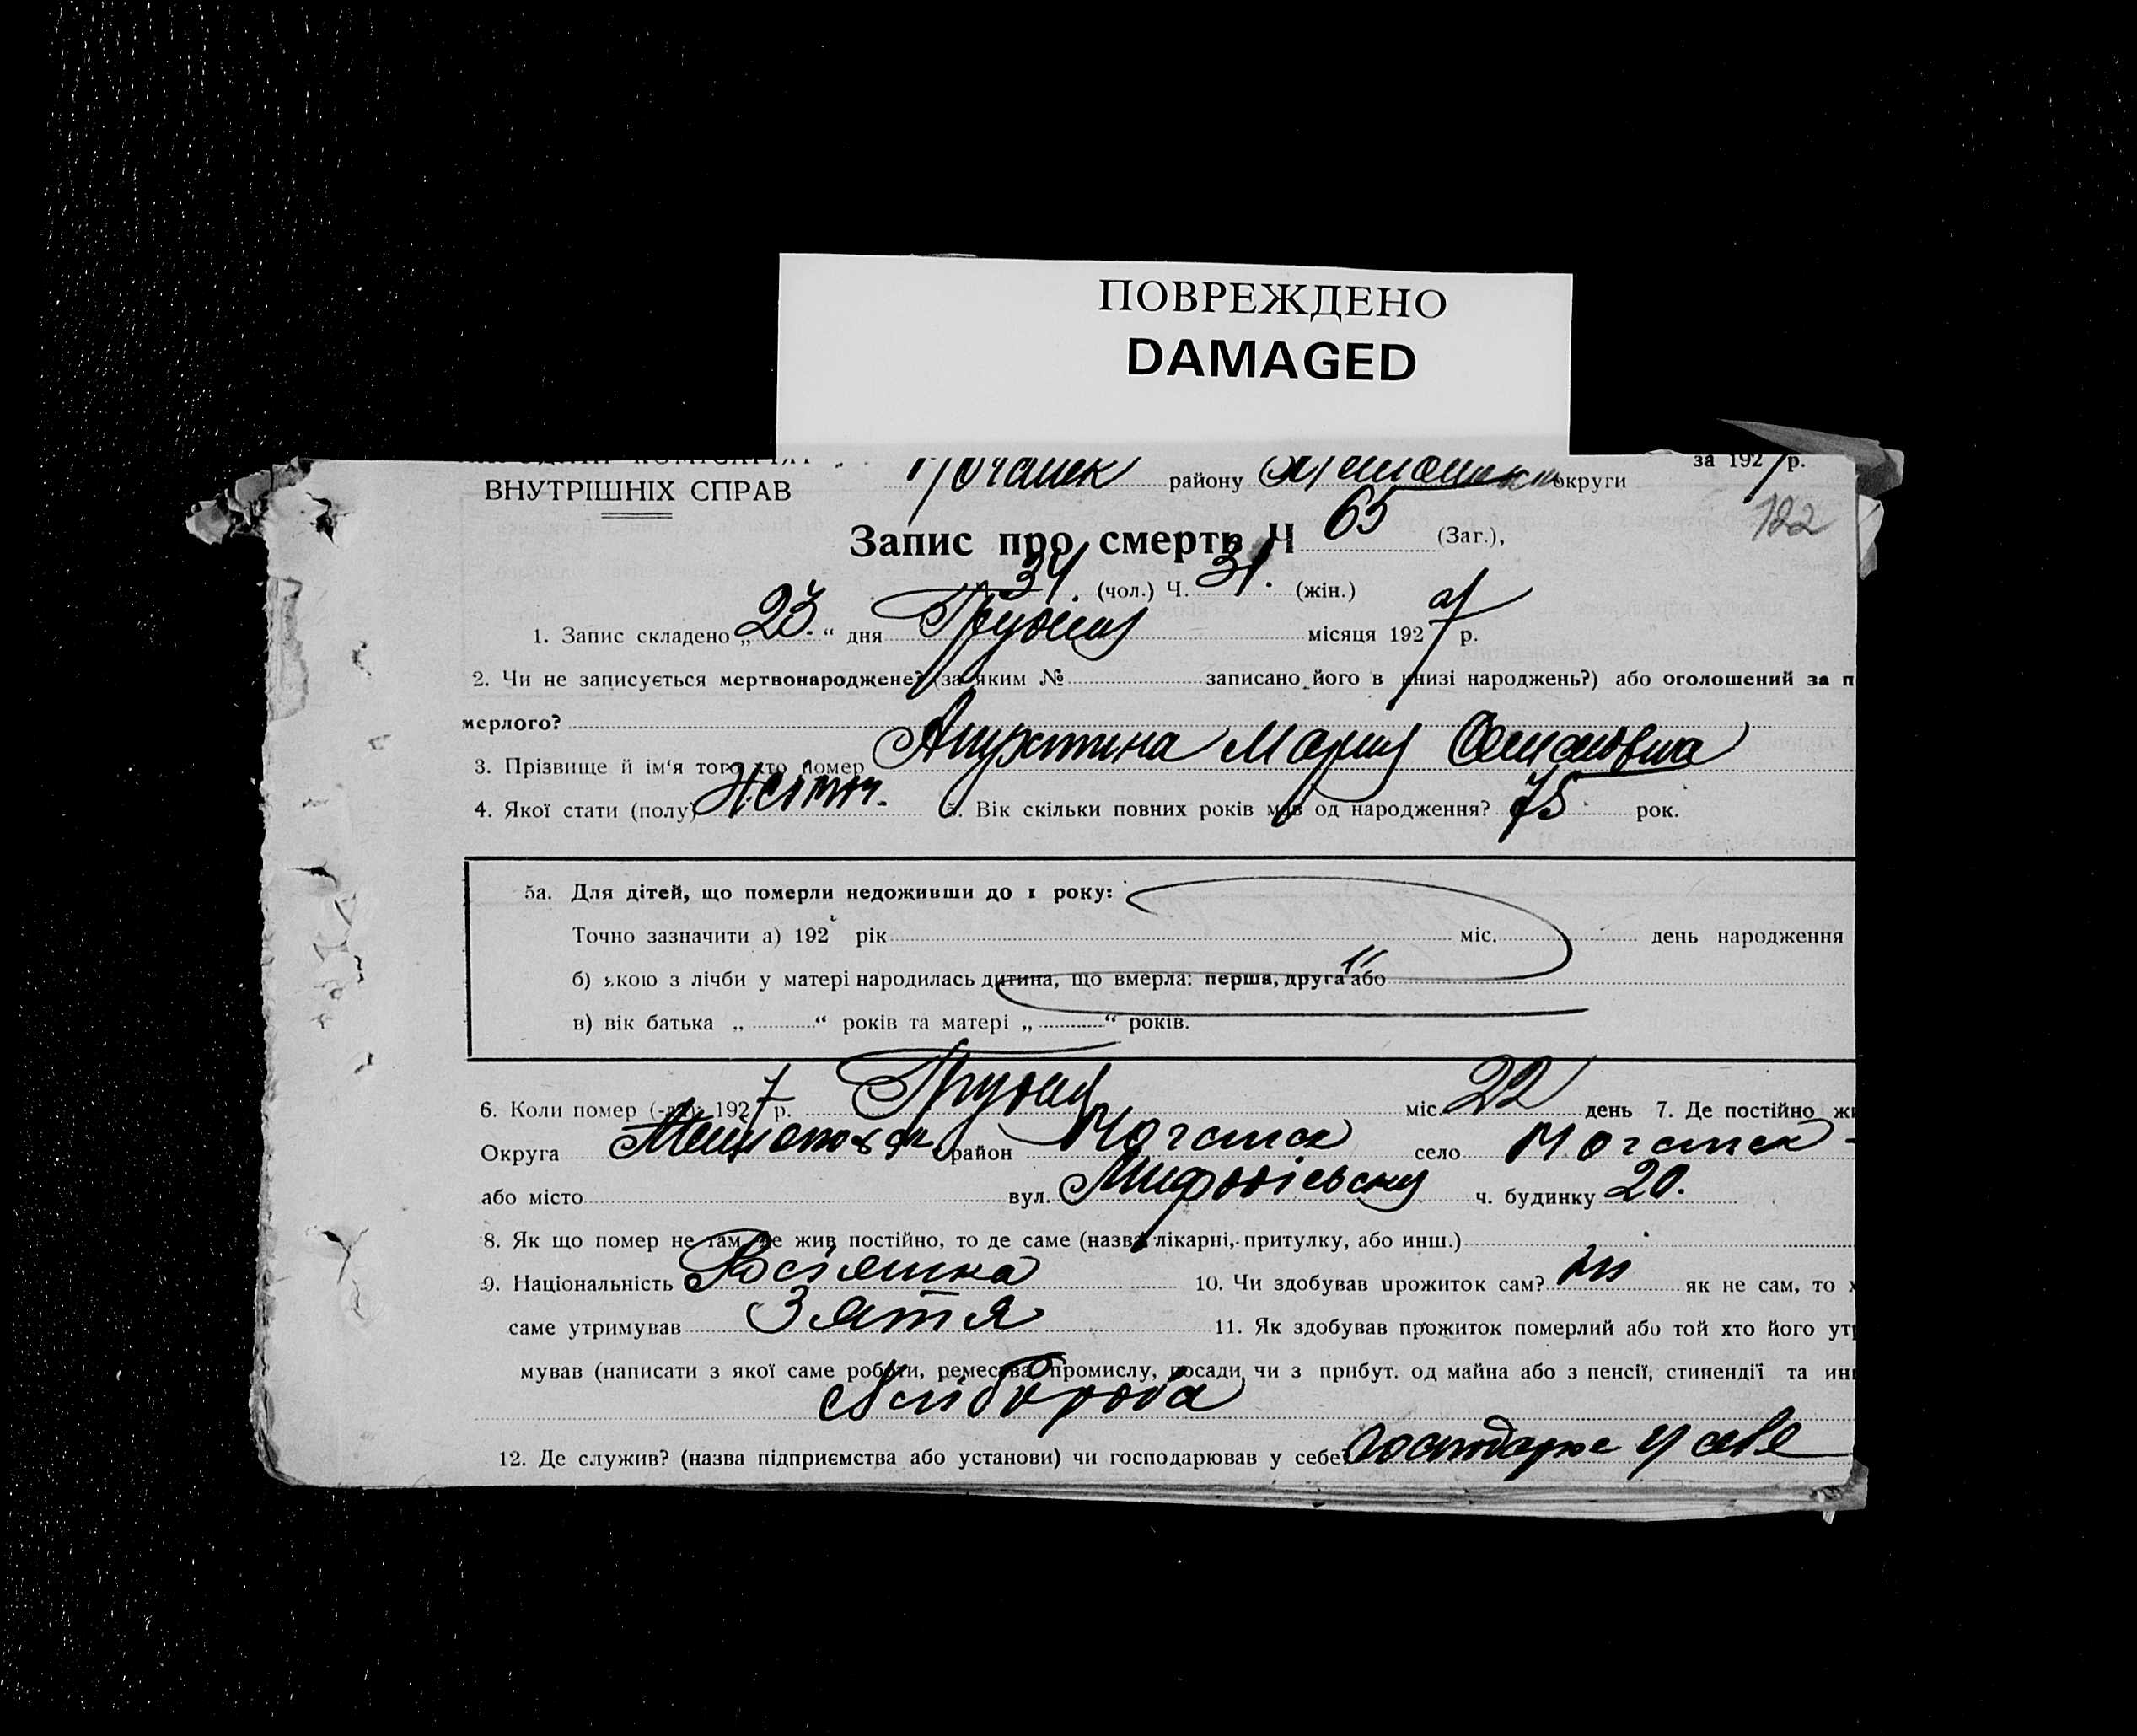 ПОВРЕЖДЕНО
DAMAGED
району округи за 1927 р.
ВНУТРІШНІХ СПРАВ
122
Запис про смерть Ч 65 (Заг.),
34 (чол.) Ч. 31. (жін.)
1. Запис складено „23.“ дня Грудня місяця 1927 р.
2. Чи не записується мертвонароджене? (за яким № записано його в книзі народжень?) або оголошений за п
мерлого?
3. Прізвище й ім'я того хто помер Мария
4. Якої стати (полу) 5. Вік скільки повних років мав од народження? 75 рок.
5а. Для дітей, що померли недоживши до 1 року:
Точно зазначити а) 192 рік міс. день народження
б) якою з лічби у матері народилась дитина, що вмерла: перша, друга або
в) вік батька „ “ років та матері „ “ років.
6. Коли помер (-ла): 1927 р. Грудня міс. 22 день 7. Де постійно жи
Округа район село
або місто вул. ч. будинку 20.
8. Як що помер не там, де жив постійно, то де саме (назва лікарні, притулку, або инш.)
9. Національність Росіянка 10. Чи здобував прожиток сам? ні як не сам, то х
саме утримував Зятя 11. Як здобував прожиток померлий або той хто його утр
мував (написати з якої саме роботи, ремества, промислу, посади чи з прибут. од майна або з пенсії, стипендії та ин
Хлібороба
12. Де служив? (назва підприємства або установи) чи господарював у себе? господарює у себе